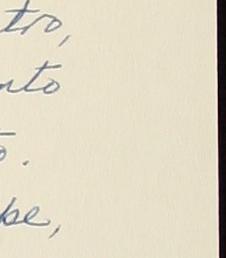 tro,
nto
o.
be,